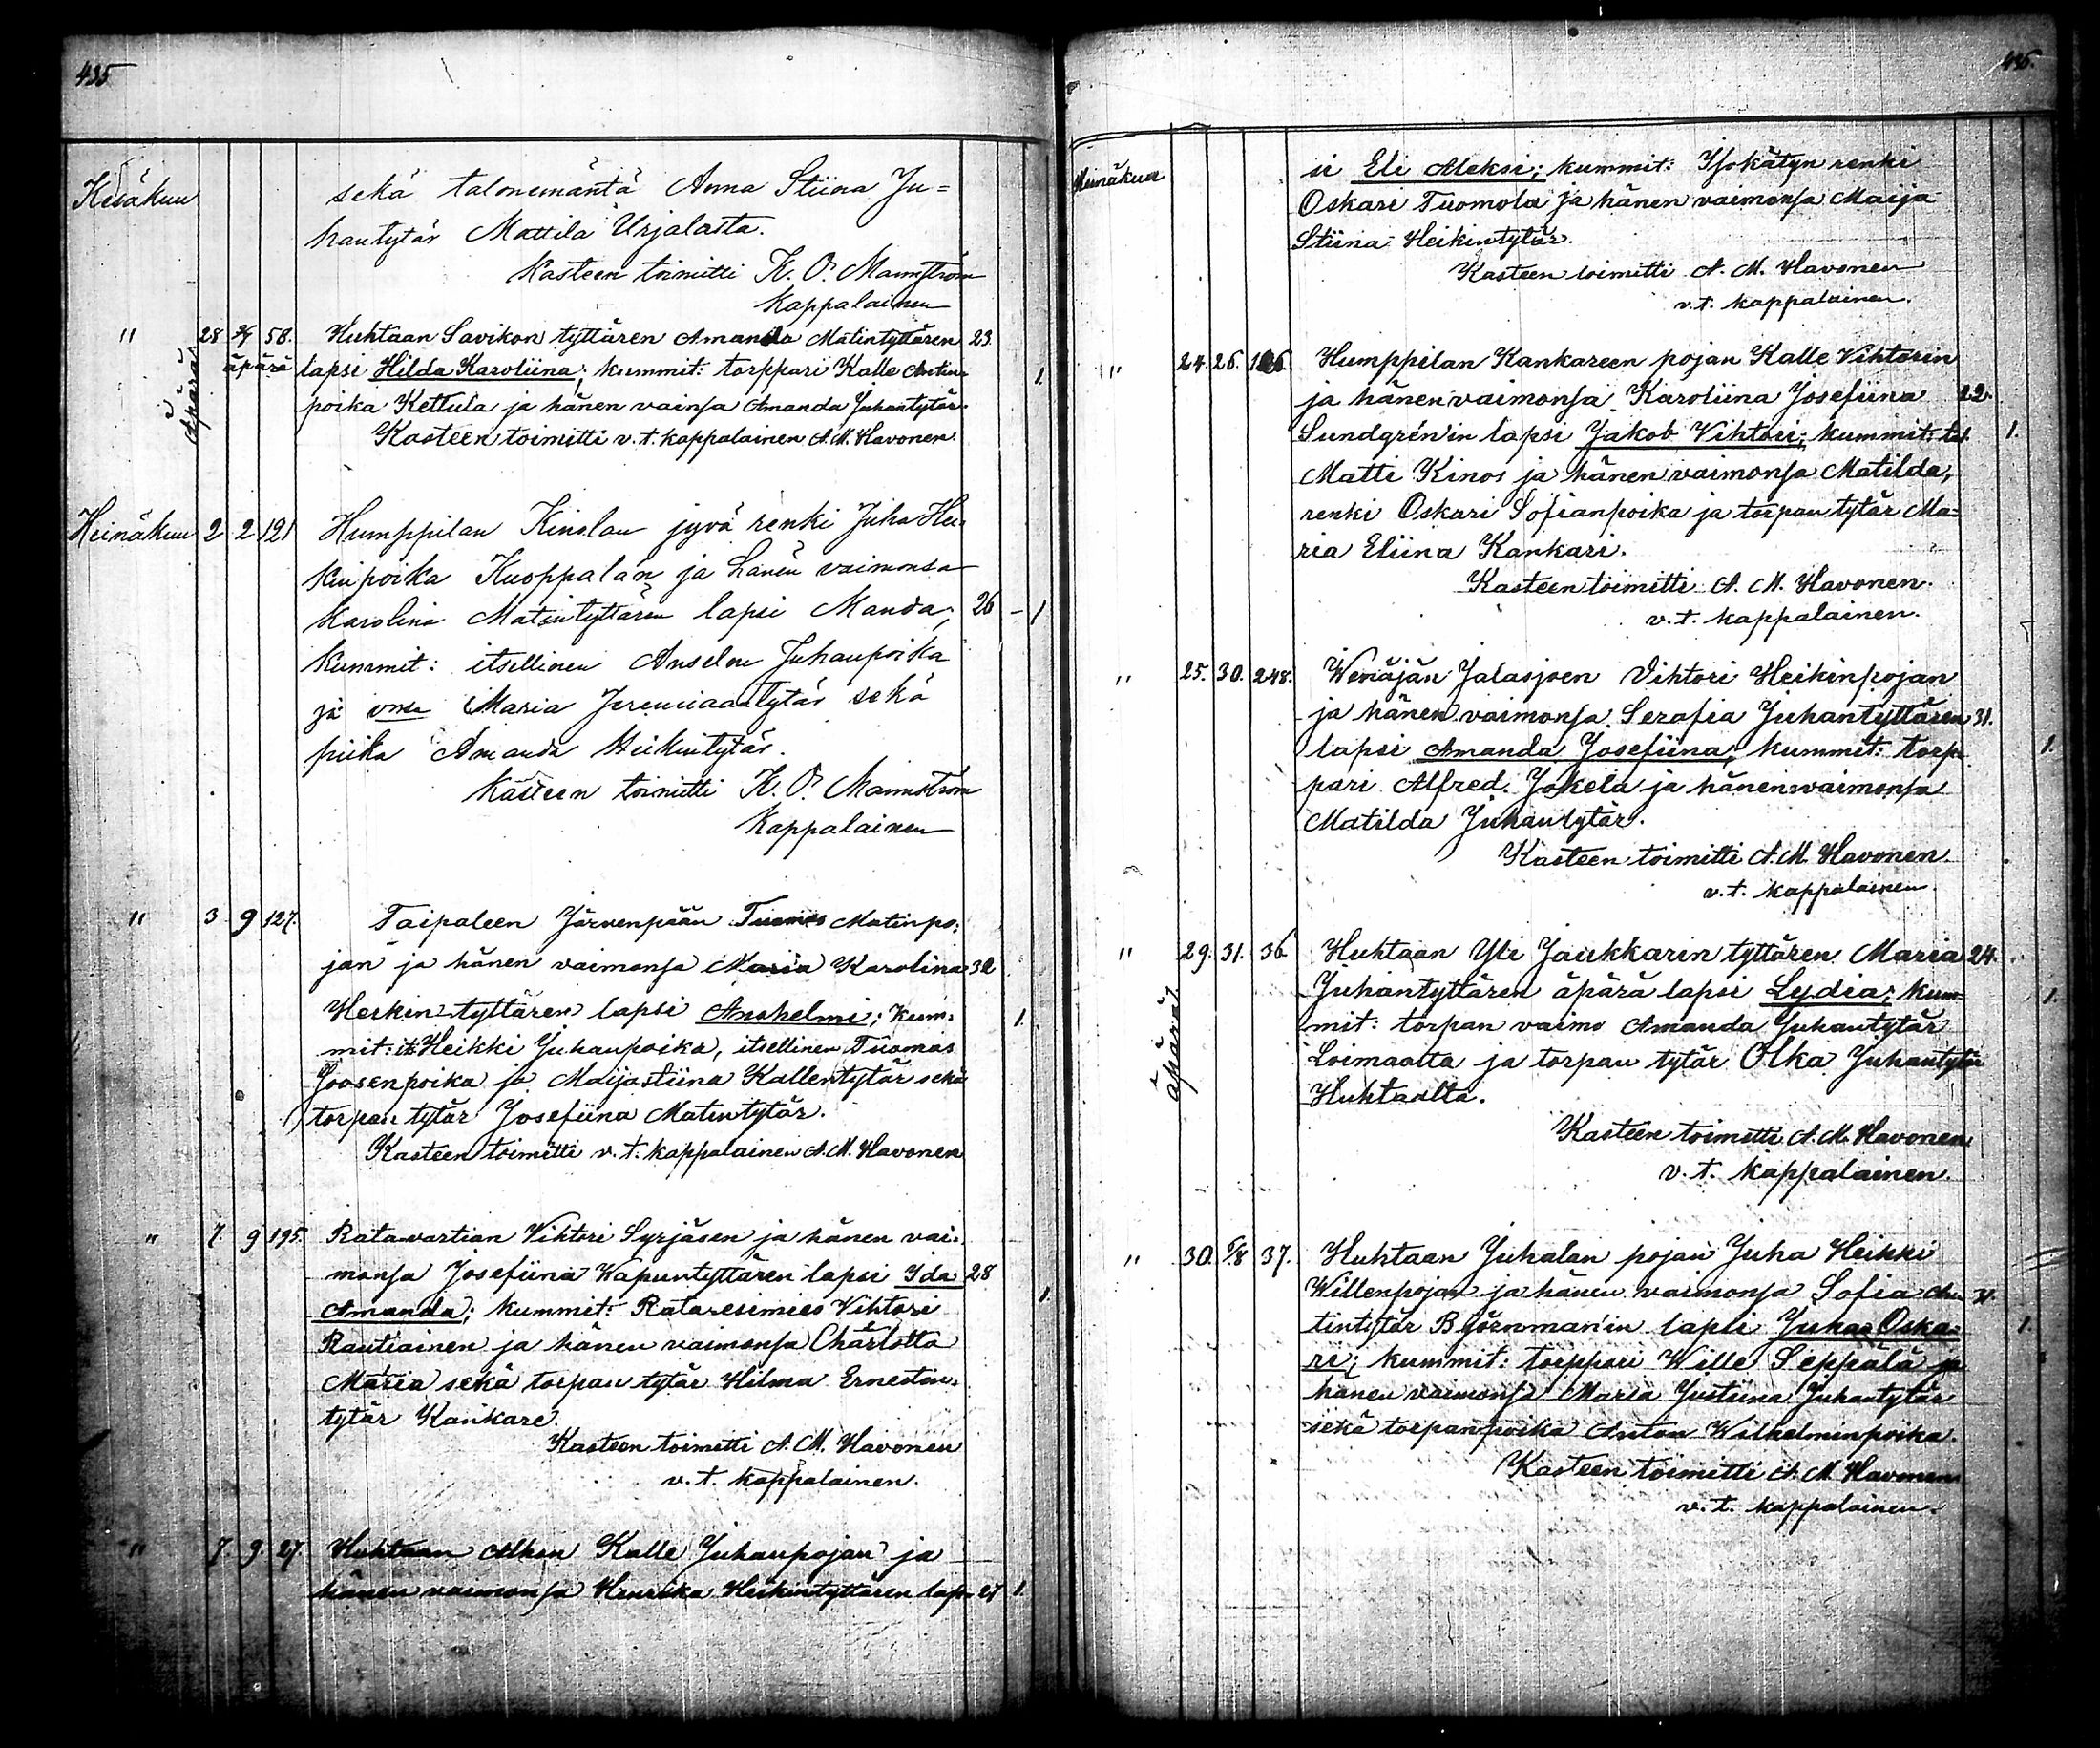 435
Kesäkuu
sekä talonemäntä Anna Stiina Ju=
hantytär Mattila Urjalasta.
Kasteen toimitti K. O. Mannström
Kappalainen
" 28 58. Huhtaan Savikon tyttären Amanda Matintyttären 23.
äpärä lapsi Hilda Karoliina; kummit: torppari Kalle Antin= 1.
Äpärä poika Kettula ja hänen vaimsa Amanda Juhantytär.
Kasteen toimitti v. t. kappalainen A. M. Havonen.
Heinäkuu 2 2 121 Humppilan Kinolan jyvä renki Juha Hei-
kinpoika Kuoppalan ja hänen vaimonsa
Karolina Matintyttären lapsi Manda; 26 - 1
Kummit: itsellinen Anselm Juhanpoika
ja vmsa Maria Jeremiaantytär sekä
piika Amanda Heikintytär.
Kasteen toimitti K. O. Mannström
Kappalainen
" 3 9 127. Taipaleen Järvenpään Tuomas Matinpo=
jan ja hänen vaimonsa Maria Karolina 32
Heikin tyttären lapsi Anshelmi; kum= 1.
mit: it. Heikki Juhanpoika, itsellinen Tuomas
Joosenpoika ja Maijastiina Kallentytär sekä
torpan tytär Josefiina Matintytär.
Kasteen toimitti v. t. kappalainen A. M. Havonen
" 7. 9 195. Ratavartian Vihtori Syrjäsen ja hänen vai=
monsa Josefiina Wapuntyttären lapsi Ida 28
Amanda; kummit: Rataesimies Vihtori 1.
Rautiainen ja hänen vaimonsa Charlotta
Maria sekä torpan tytär Hilma Ernestin=
tytär Kankare.
Kasteen toimitti A. M. Havonen
v. t. kappalainen.
" 7. 9. 27. Huhtaan Alhon Kalle Juhanpojan ja
hänen vaimonsa Henrika Heikintyttären lap= 27 1.
436.
Heinäkuu
si Eli Aleksi; kummit: Isokätyn renki
Oskari Tuomola ja hänen vaimonsa Maija
Stiina Heikintytär.
Kasteen toimitti A. M. Havonen
v. t. kappalainen.
" 24. 26. Humppilan Kankareen pojan Kalle Vihtorin
ja hänen vaimonsa Karoliina Josefiina 22.
Sundgrén'in lapsi Jakob Vihtori; kummit: tal. 1.
Matti Kinos ja hänen vaimonsa Matilda,
renki Oskari Sofianpoika ja torpan tytär Ma=
ria Eliina Kankari.
Kasteen toimitti A. M. Havonen.
v. t. kappalainen.
" 25. 30. 248. Wenäjän Jalasjoen Vihtori Heikinpojan
ja hänen vaimonsa Serafia Juhantyttären 31.
lapsi Amanda Josefiina; kummit: torp= 1.
pari Alfred Jokela ja hänen vaimonsa
Matilda Juhantytär.
Kasteen toimitti A. M. Havonen
v. t. kappalainen.
" 29. 31. 36 Huhtaan Yli Jaukkarin tyttären Maria 24.
Juhantyttären äpärä lapsi Lydia; kum= 1.
mit: torpan vaimo Amanda Juhantytär
äpärä Loimaalta ja torpan tytär Olka Juhantytär
Huhtaalta.
Kasteen toimitti A. M. Havonen
v. t. kappalainen.
" 30. 5/8 37. Huhtaan Juhalan pojan Juha Heikki
Willenpojan ja hänen vaimonsa Sofia An= 31.
tintytär Björnman'in lapsi Juha Oska= 1.
ri; kummit: torppari Wille Seppälä ja
hänen vaimonsa Maria Justiina Juhantytär
sekä torpanpoika Anton Wilhelminpoika.
Kasteen toimitti A. M. Havonen
v. t. kappalainen.